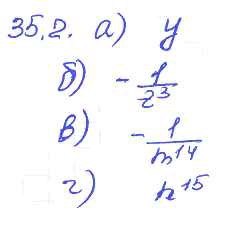 35.2. а) y
б) - 1/z³
в) - 1/m¹⁴
г) n¹⁵